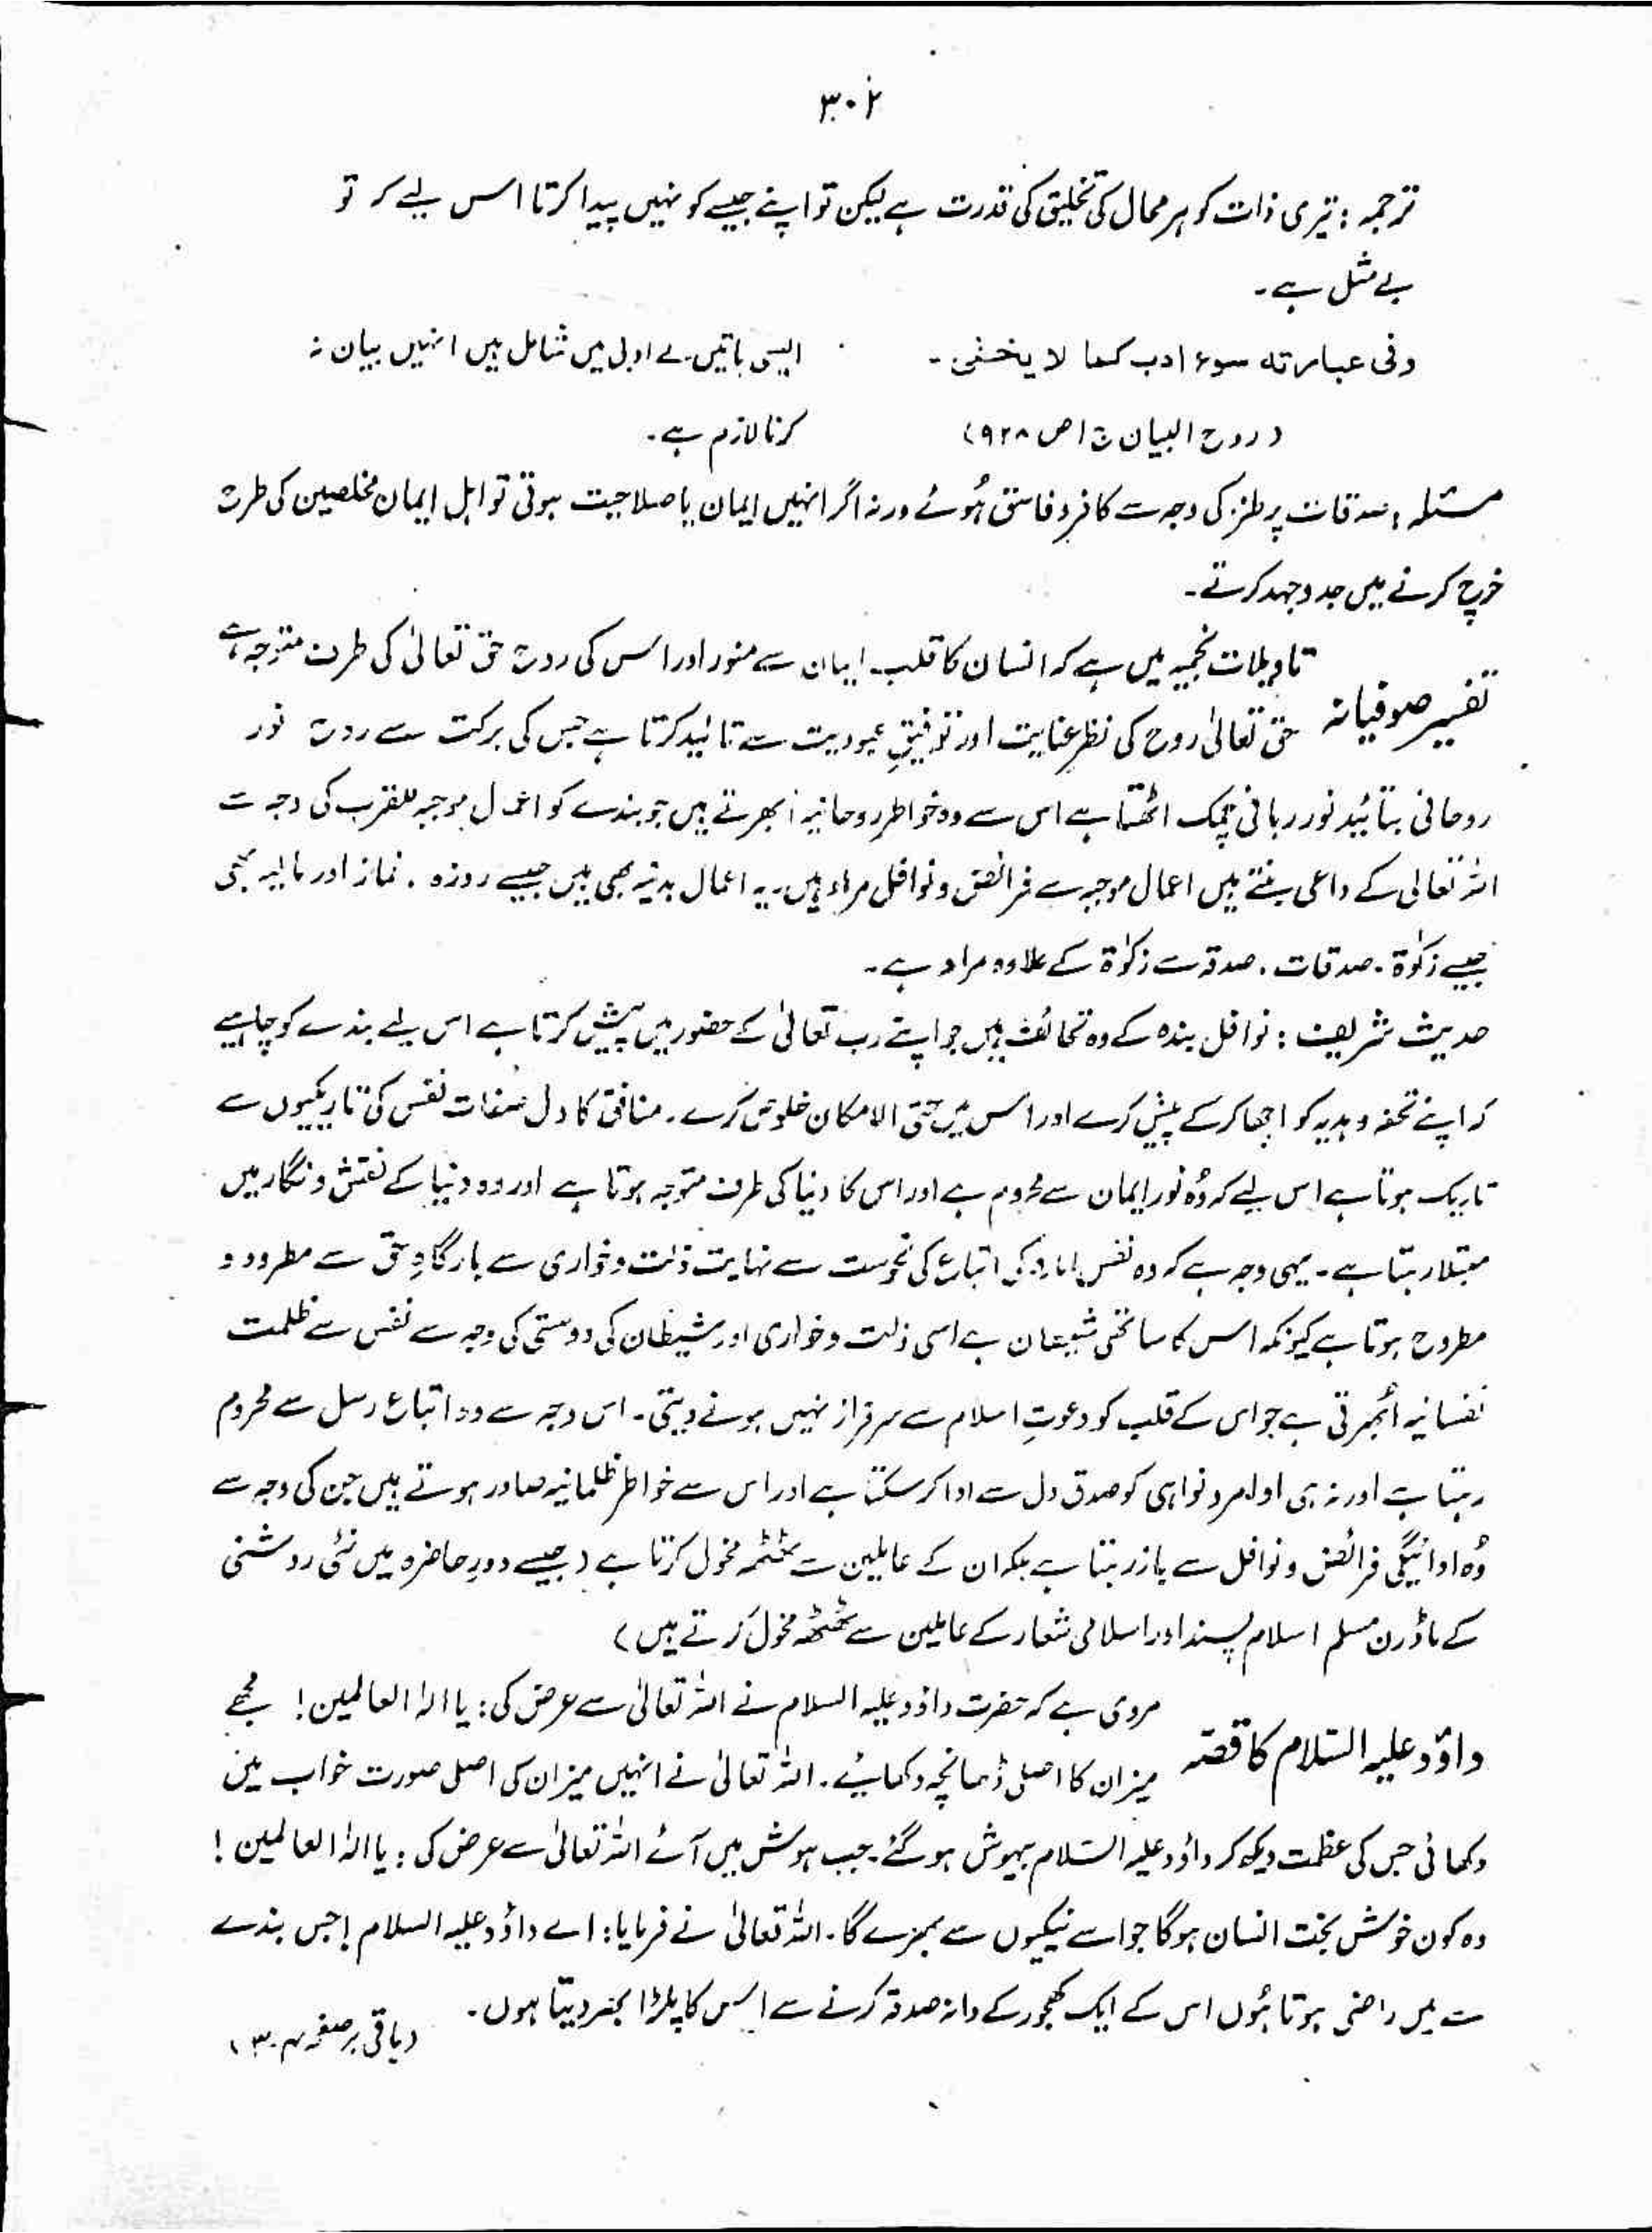 ۳۰۲
ترجمہ : تیری ذات کو ہر محال کی تخلیق کی قدرت ہے لیکن تو اپنے جیسے کو نہیں پیدا کرتا اس لیے کہ تو
بے مثل ہے۔
وفی عبارتہ سوء ادب کما لا یخفی۔ ایسی باتیں بے ادبی میں شامل ہیں انہیں بیان نہ
( روح البیان ج ۱ ص ۹۲۸) کرنا لازم ہے۔
مسئلہ : صدقات پر طنز کی وجہ سے کافر و فاسق ہُوئے ورنہ اگر انہیں ایمان یا صلاحیت ہوتی تو اہل ایمان مخلصین کی طرح
خرچ کرنے میں جدوجہد کرتے۔
تاویلات نجمیہ میں ہے کہ انسان کا قلب ایمان سے منور اور اس کی روح حق تعالیٰ کی طرف متوجہ ہے
تفسیر صوفیانہ حق تعالیٰ روح کی نظرِ عنایت اور توفیقِ عبودیت سے تائید کرتا ہے جس کی برکت سے روح نور
روحانی بتائید نور ربانی چمک اٹھتا ہے اس سے وہ خواطر روحانیہ اُبھرتے ہیں جو بندے کو اعمال موجبہ للقرب کی وجہ سے
اللہ تعالیٰ کے داعی بنتے ہیں اعمال موجبہ سے فرائض و نوافل مراد ہیں۔ یہ اعمال بدنیہ بھی ہیں جیسے روزہ ۔ نماز اور مالیہ بھی
جیسے زکوٰۃ ۔ صدقات ۔ صدقہ سے زکوٰۃ کے علاوہ مراد ہے۔
حدیث شریف : نوافل بندہ کے وہ تحائف ہیں جو اپنے رب تعالیٰ کے حضور میں پیش کرتا ہے اس لیے بندے کو چاہیے
کہ اپنے تحفہ و ہدیہ کو اچھا کرکے پیش کرے اور اس میں حتی الامکان خلوص کرے۔ منافق کا دل صفات نفس کی تاریکیوں سے
تاریک ہوتا ہے اس لیے کہ وُہ نور ایمان سے محروم ہے اور اس کا دنیا کی طرف متوجہ ہوتا ہے اور وہ دنیا کے نقش و نگار میں
مبتلا رہتا ہے۔ یہی وجہ ہے کہ وہ نفس امارہ کی اتباع کی نحوست سے نہایت ذلت و خواری سے بارگاہِ حق سے مطرود و
مطروح ہوتا ہے کیونکہ اس کا ساتھی شیطان ہے اسی ذلت و خواری اور شیطان کی دوستی کی وجہ سے نفس سے ظلمت
نفسانیہ اُبھرتی ہے جو اس کے قلب کو دعوتِ اسلام سے سرفراز نہیں ہونے دیتی۔ اس وجہ سے وہ اتباع رسل سے محروم
رہتا ہے اور نہ ہی اوامر و نواہی کو صدق دل سے ادا کر سکتا ہے اور اس سے خواطر ظلمانیہ صادر ہوتے ہیں جن کی وجہ سے
وُہ ادائیگی فرائض و نوافل سے باز رہتا ہے بلکہ ان کے عاملین سے ٹھٹھہ مخول کرتا ہے (جیسے دورِ حاضرہ میں نئی روشنی
کے ماڈرن مسلم اسلام پسند اور اسلامی شعار کے عاملین سے ٹھٹھہ مخول کرتے ہیں)
مروی ہے کہ حضرت داؤد علیہ السلام نے اللہ تعالیٰ سے عرض کی: یا الٰہ العالمین! مجھے
داؤد علیہ السّلام کا قصّہ میزان کا اصلی ڈھانچہ دکھائیے۔ اللہ تعالیٰ نے انہیں میزان کی اصل صورت خواب میں
دکھائی جس کی عظمت دیکھ کر داؤد علیہ السّلام بیہوش ہوگئے۔ جب ہوش میں آئے اللہ تعالیٰ سے عرض کی : یا الٰہ العالمین !
وہ کون خوش بخت انسان ہوگا جو اسے نیکیوں سے بھرے گا۔ اللہ تعالیٰ نے فرمایا: اے داؤد علیہ السلام! جس بندے
سے میں راضی ہوتا ہُوں اس کے ایک کھجور کے دانہ صدقہ کرنے سے اس کا پلڑا بھر دیتا ہوں۔
(باقی بر صفحہ ۳۰۴)